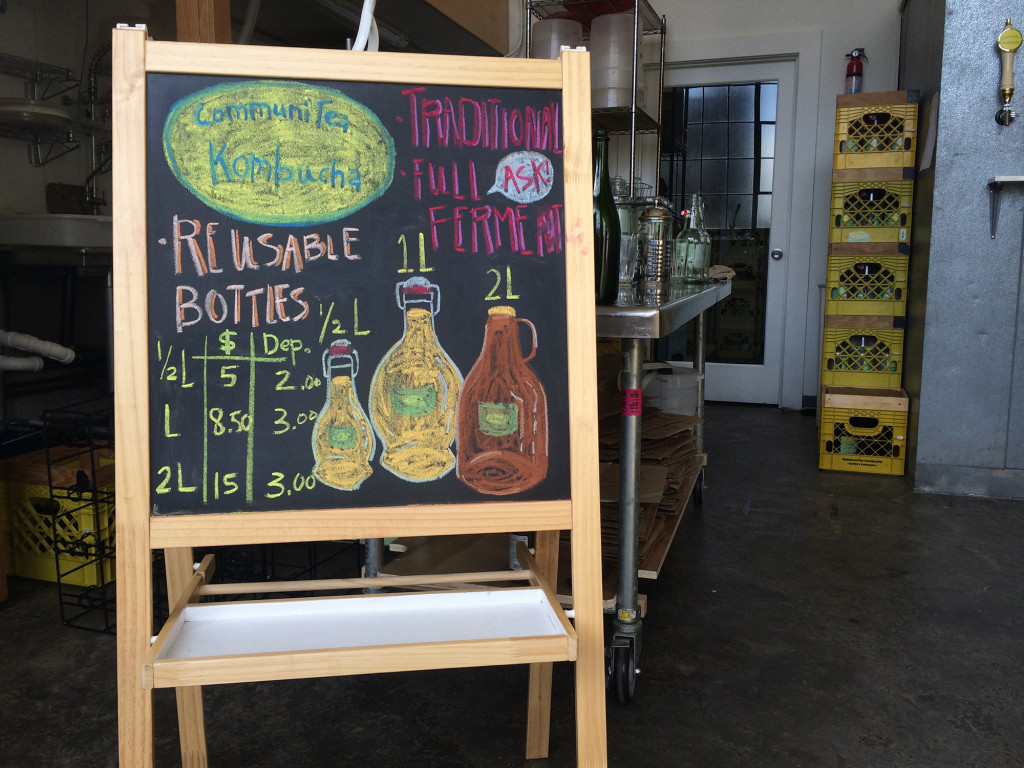 CommuniTea
Kombucha
· TRADITIONAL
· FULL
ASK!
FERMENT
· REUSABLE
BOTTLES
1/2 L
1L
2L
$ Dep.
1/2 L 5 2.00
L 8.50 3.00
2L 15 3.00